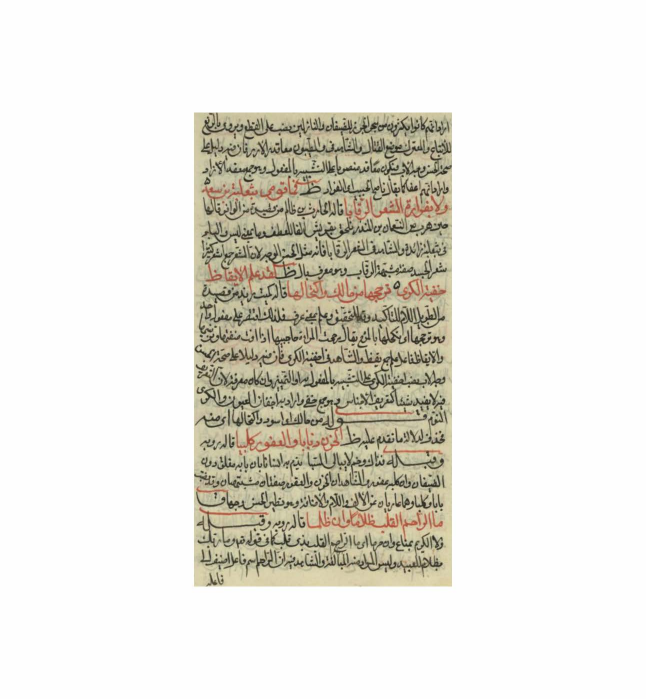 اراد انهم كانوا يكثرون من نحر الجزر للضيفان والنازلين ونصب على القطع ويروى بالرفع
للاتباع والمعترك موضع القتال والشاهد في والطيبون معاقد الازر فان فيه دليلا على
صحة الحسن وجه الاب ويكون معاقد منصوبا على التشبيه بالمفعول وهو جمع معقد الازار
واراد انهم اعفا كما يقال ناصح الجيب اي الفواد ظ فما قومي بثعلبة بن سعد
ولا بفزارة الشعر الرقابا قاله الحارث بن ظالم من قصيدة من الوافر قالها
حين هرب من النعمان بن المنذر فلحق بقريش الفا للعطف وما بمعنى ليس والبا
في بثعلبة زائدة والشاهد في الشعر الرقابا فانه مثل الحسن الوجه لان الشعر جمع اشعر كثير
شعر الجسد صفة مشبهة الرقاب وهو معرف بال ظ لقد علم الايقاظ
خفية الكرى تزججها من حالك واكتحالها قاله كميت بن زيد من قصيدة
من الطويل اللام للتاكيد وقد للتحقيق وعلم بمعنى عرف فلذلك اقتصر على مفعول واحد
وهو تزججها اي تكحلها يقال زججت المراة حاجبيها اذا
والايقاظ فاعله جمع يقظ والشاهد في اخفية الكرى فان فيه دليلا على صحة حسن
وجه الاب بنصب اخفية الكرى على التشبيه بالمفعول به او التمييز وان كان معرفة لان التعريف
فيه لا يفيد شيا كتعريف الاجناس وهو جمع خفي واراد به اجفان العيون والكرى
النوم قوله من حالك اي اسود واكتحالها اي منه
فحذف لدلالة ما تقدم عليه ظ الحزن بابا والعقور كلبا قاله روبه
وقبله فذاك وخم لا يبالي السبا يذم به انسانا بان بابه مغلق دون
الضيفان وان كلبه عقور والشاهد ان الحزن والعقور صفتان مشبهتان وقد نصبتا
بابا وكلبا وهما عاريان عن الالف واللام والاضافة وهو نظير الحسن وجها ق
ما الراحم القلب ظلاما وان ظلما قاله روبه وقبله
ولا الكريم بمناع وان حرما اي ما الراحم القلب بذي ظلم كما في قوله تع وما ربك
بظلام للعبيد وليس المراد منه المبالغة والشاهد فيه ان الراحم اسم فاعل اضيف الى
فاعله